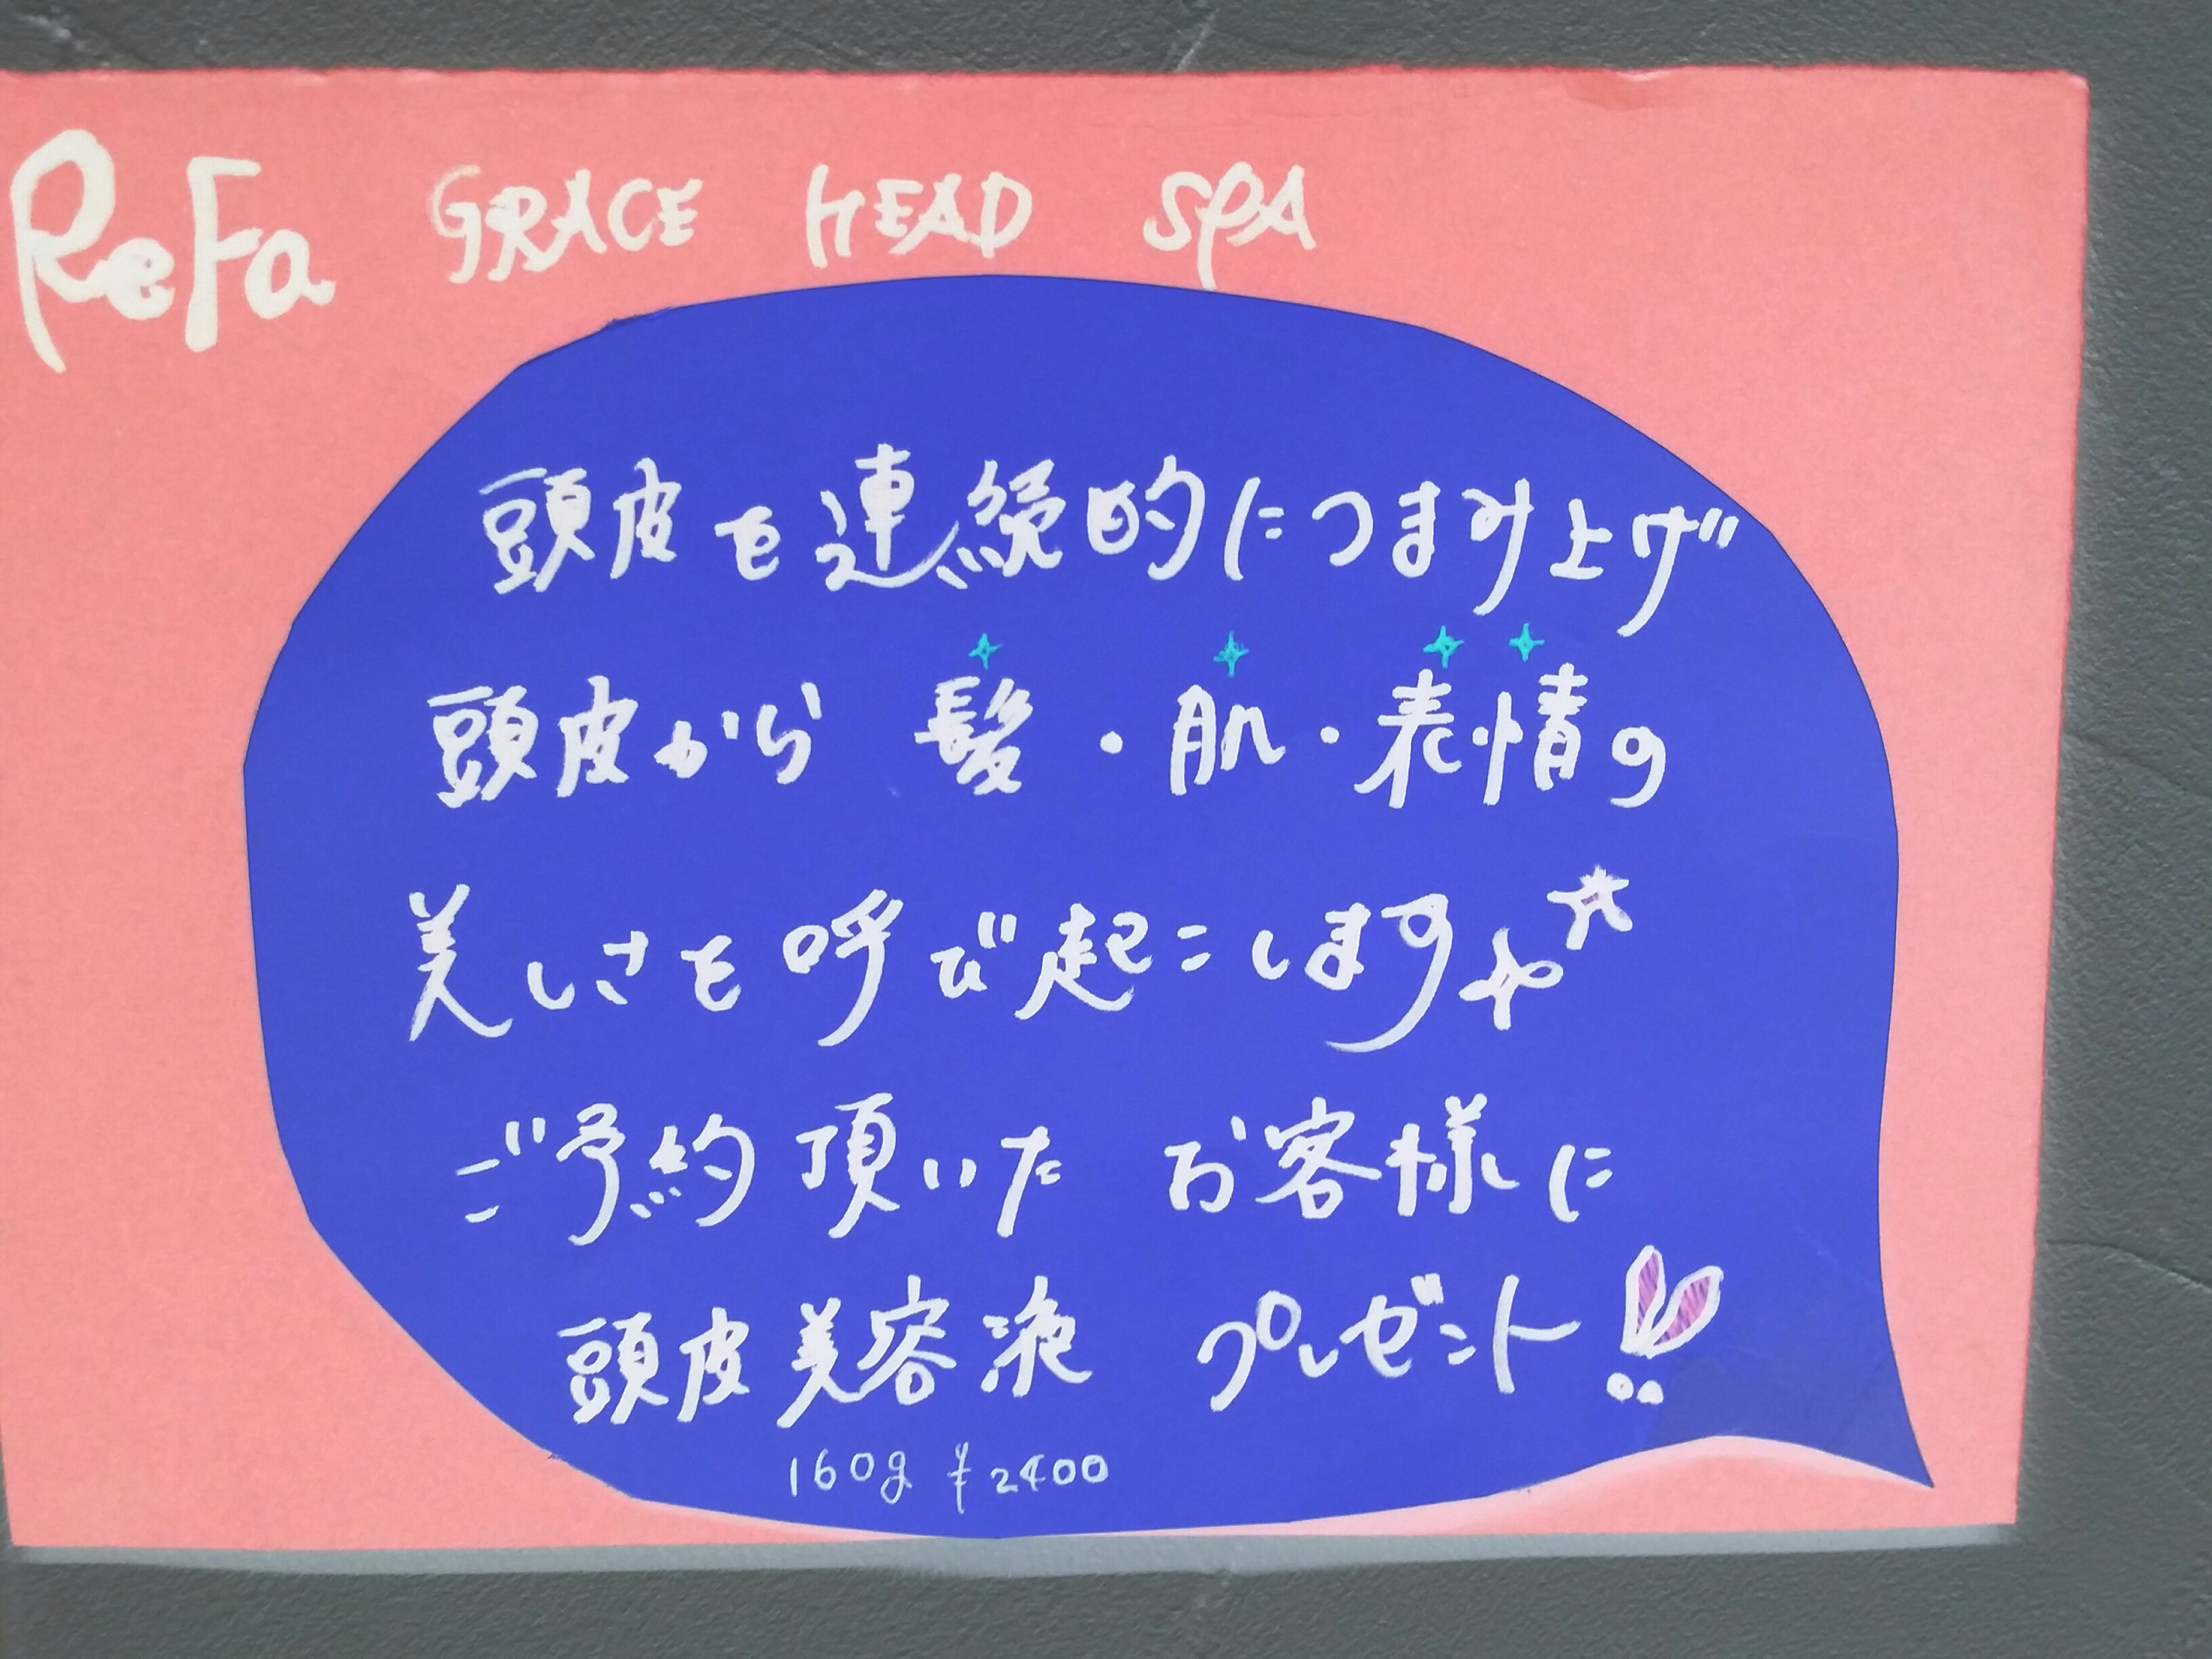 ReFa GRACE HEAD SPA
頭皮を連続的につまみ上げ
頭皮から 髪・肌・表情の
美しさを呼び起こします
ご予約頂いた お客様に
頭皮美容液 プレゼント!!
160g ¥2400